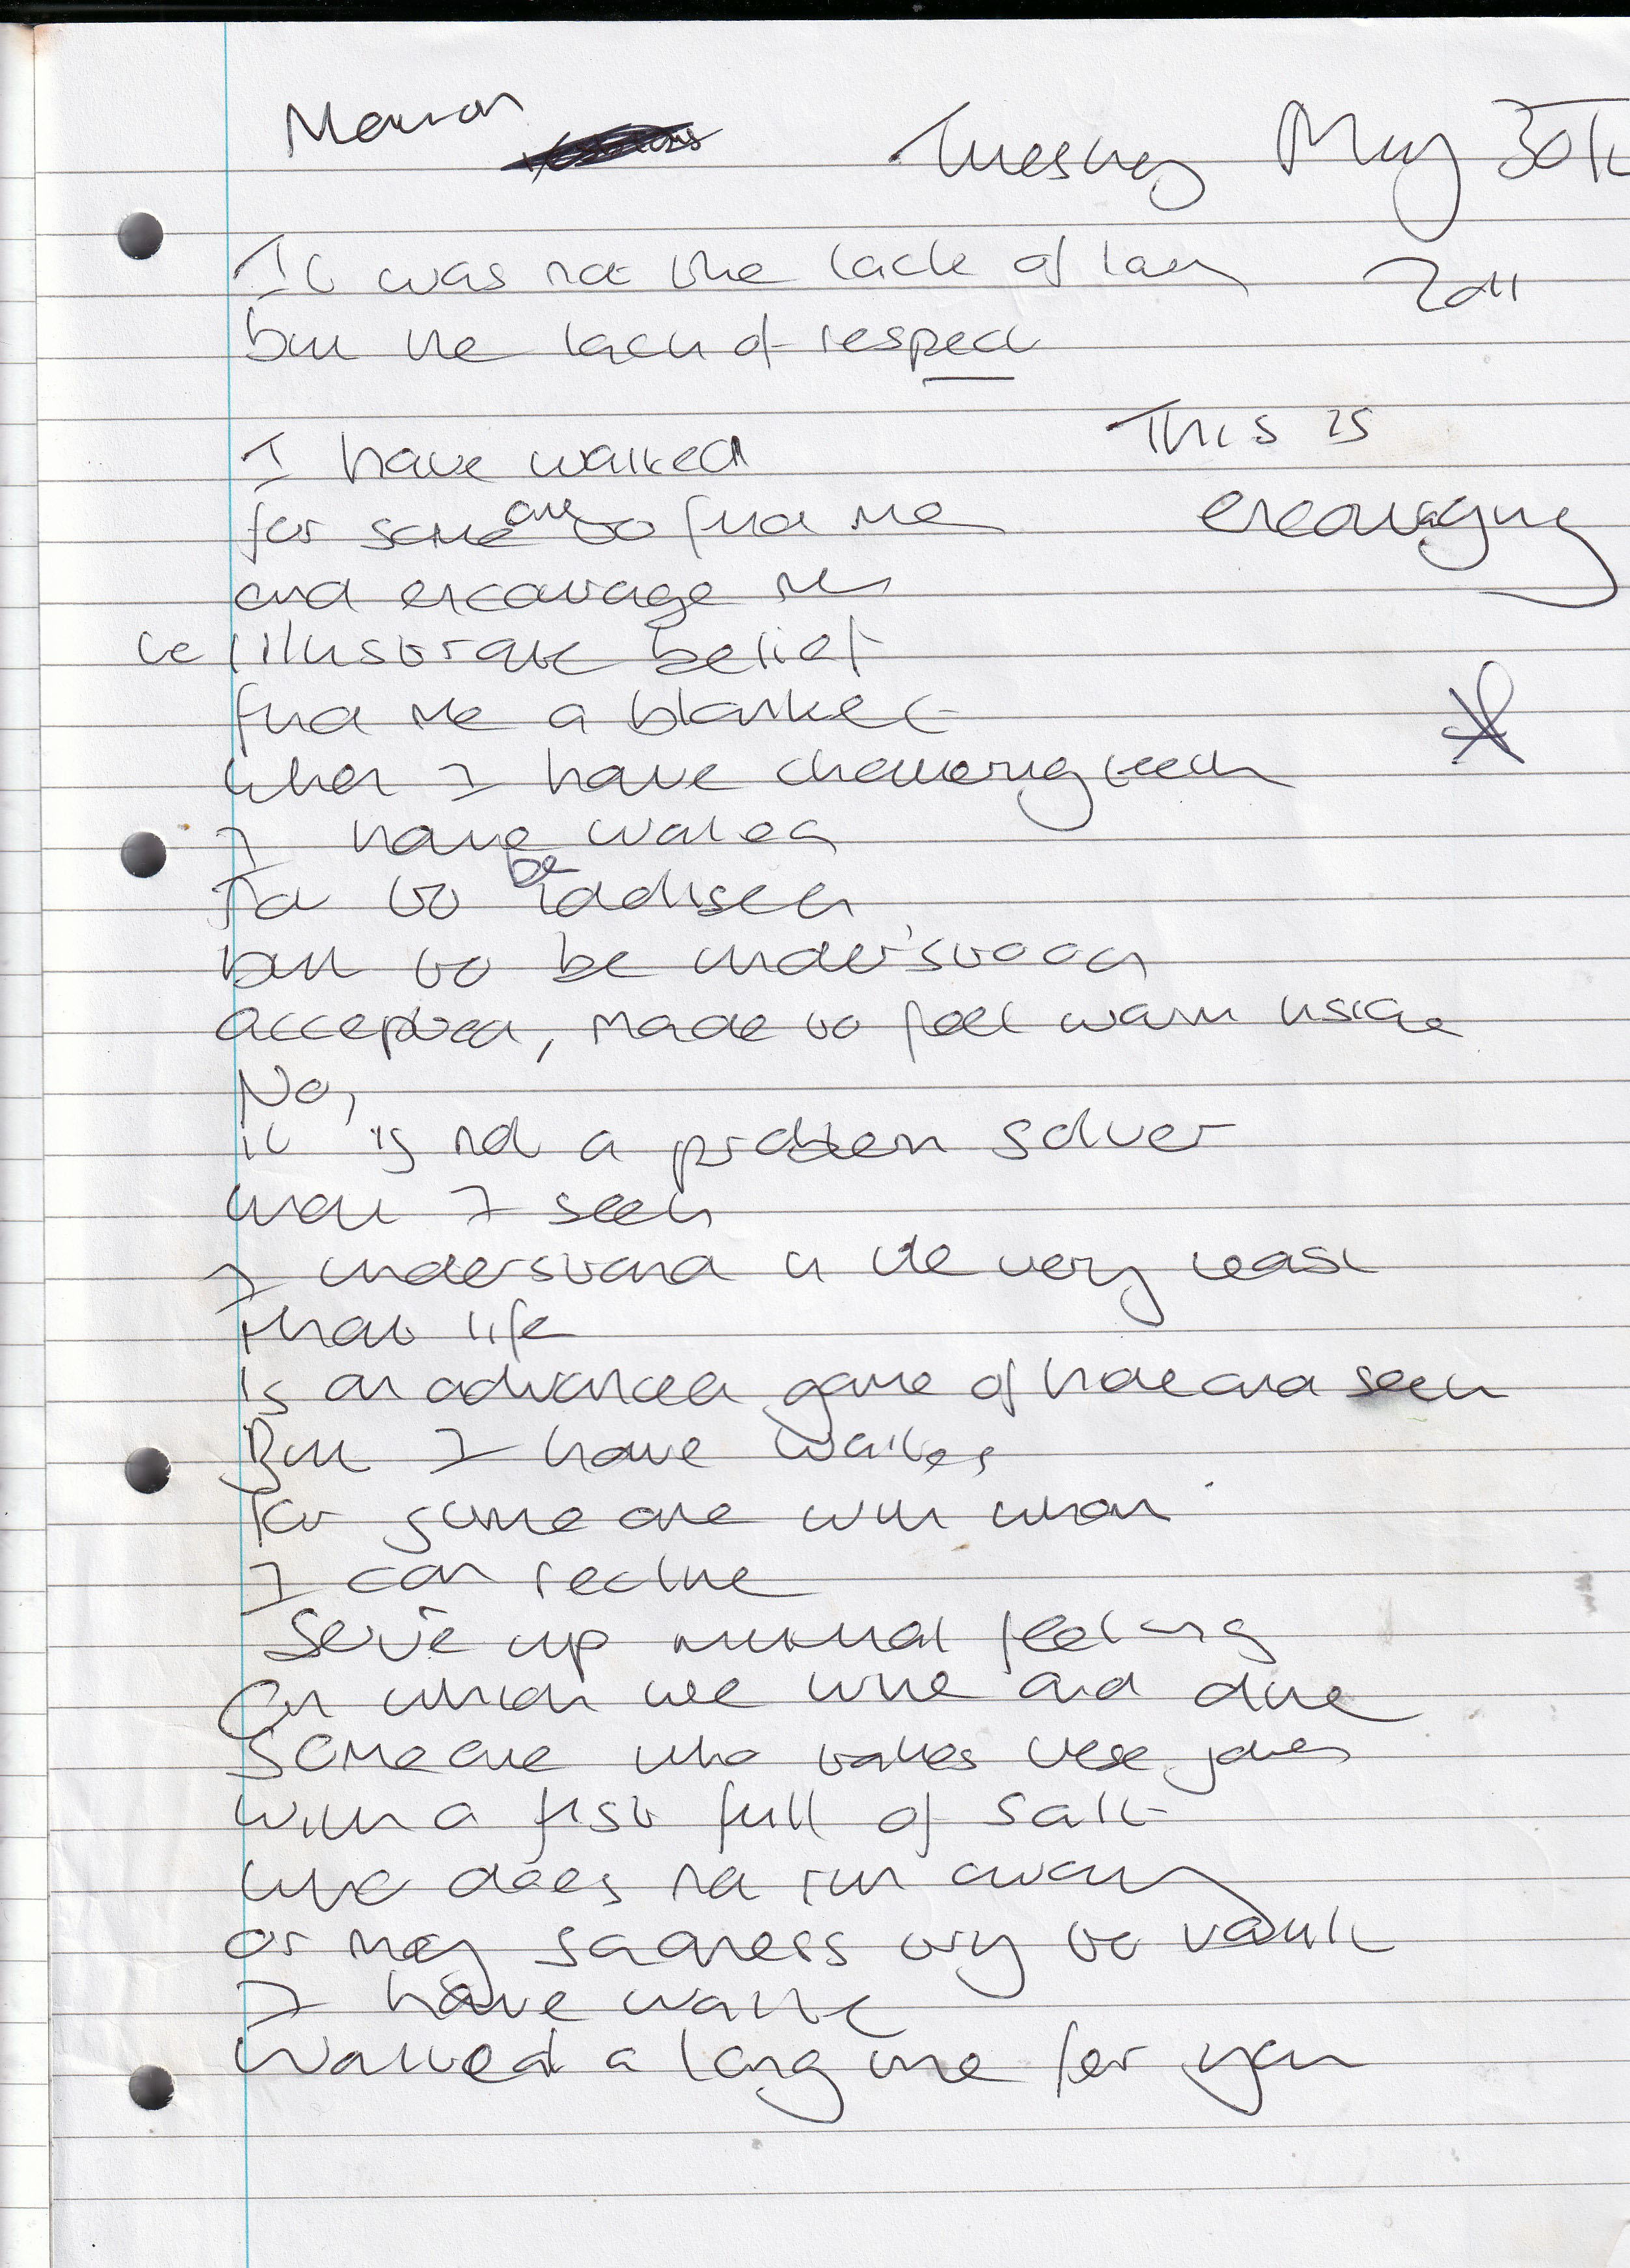 Tuesday May 30th
2011
It was not the lack of
but the lack of respect
This is
encouraging
I have waited
for some one to find me
and encourage me
illustrate belief
find me a blanket
when I have chattering teeth
I have waited
Not to be
but to be understood
accepted, made to feel warm inside
No,
it is not a problem solver
what I seek
I understand in the very least
that life
is an advanced game of hide and seek
But I have waited
for some one with whom
I can recline
Serve up mutual feeling
On which we wine and dine
Some one who takes these jokes
with a fist full of salt
who does not run away
or my sadness try to vault
I have
Waited a long time for you